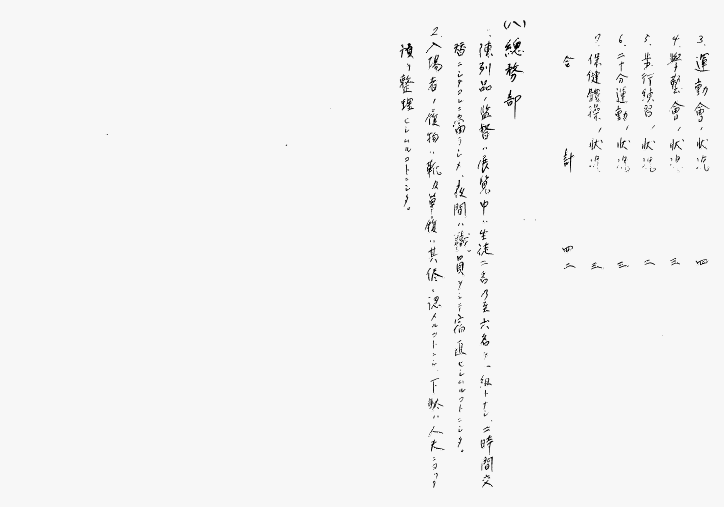 3. 運動會ノ狀況 四
4. 學藝會ノ狀況 三
5. 步行練習ノ狀況 二
6. 二十分運動ノ狀況 三
7. 保健體操ノ狀況 三
合計 四二
(八) 總務部
1. 陳列品ノ監督ハ展覽中ハ生徒二名乃至六名ヲ一組トナシ、二時間交
替ニシテコレニ當ラシメ、夜間ハ議員ヲシテ宿直セシムルコトニシタ。
2. 入場者ノ履物ハ靴及草履ハ其ノ儘認メルコトトシ、下駄ハ人夫ニヨツテ
預リ整理セシムルコトニシタ。